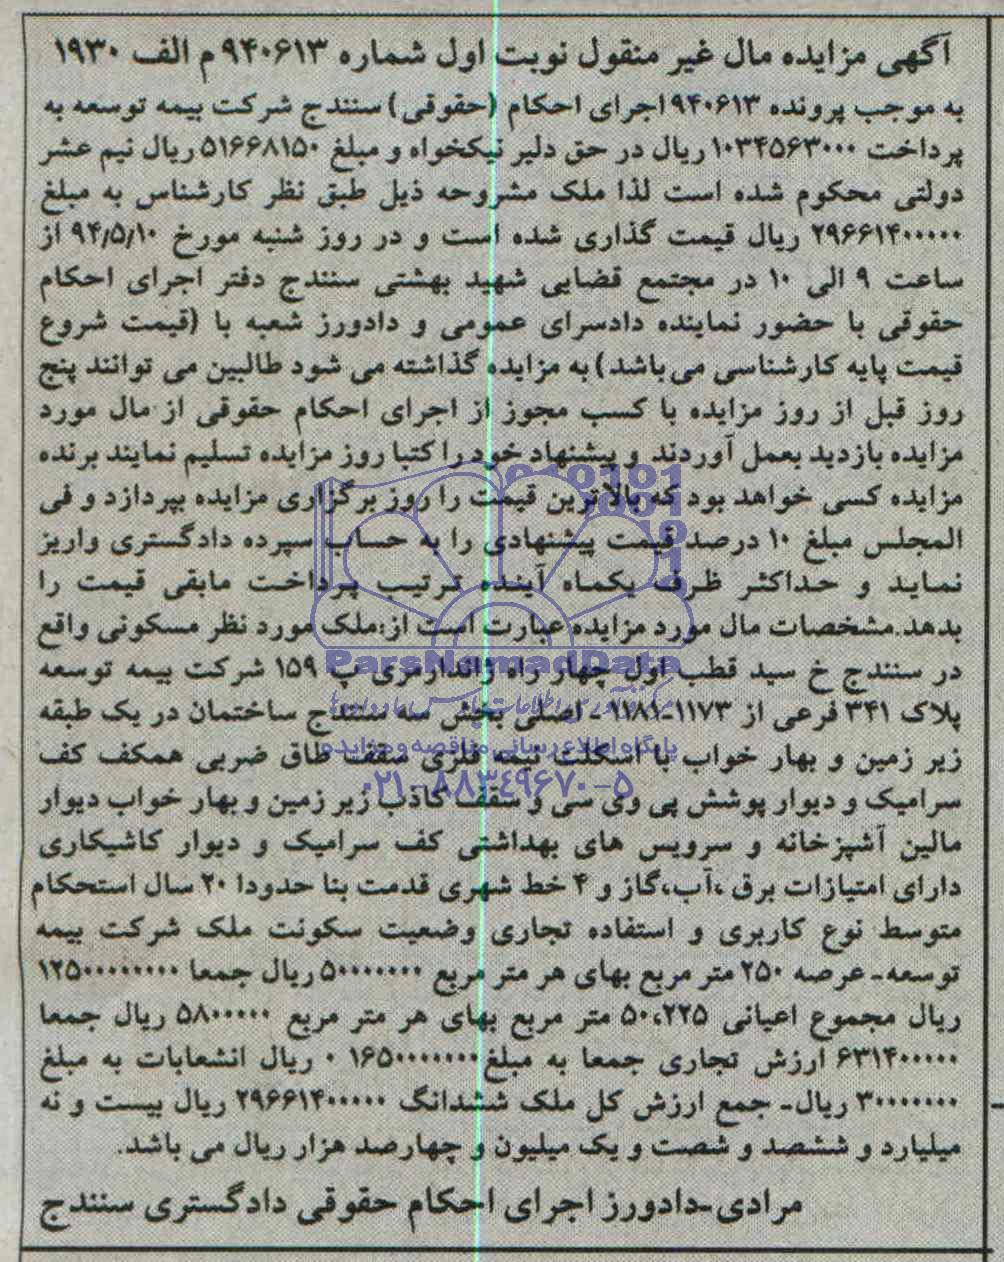 آگهی مزایده مال غیر منقول نوبت اول شماره ۹۴۰۶۱۳ م الف ۱۹۳۰
به موجب پرونده ۹۴۰۶۱۳ اجرای احکام (حقوقی) سنندج شرکت بیمه توسعه به
پرداخت ۱۰۳۴۵۶۳۰۰۰ ریال در حق دلیر نیکخواه و مبلغ ۵۱۶۶۸۱۵۰ ریال نیم عشر
دولتی محکوم شده است لذا ملک مشروحه ذیل طبق نظر کارشناس به مبلغ
۲۹۶۶۱۴۰۰۰۰۰ ریال قیمت گذاری شده است و در روز شنبه مورخ ۹۴/۵/۱۰ از
ساعت ۹ الی ۱۰ در مجتمع قضایی شهید بهشتی سنندج دفتر اجرای احکام
حقوقی با حضور نماینده دادسرای عمومی و دادورز شعبه با (قیمت شروع
قیمت پایه کارشناسی می باشد) به مزایده گذاشته می شود طالبین می توانند پنج
روز قبل از روز مزایده با کسب مجوز از اجرای احکام حقوقی از مال مورد
مزایده بازدید بعمل آوردند و پیشنهاد خود را کتبا روز مزایده تسلیم نمایند برنده
مزایده کسی خواهد بود که بالاترین قیمت را روز برگزاری مزایده بپردازد و فی
المجلس مبلغ ۱۰ درصد قیمت پیشنهادی را به حساب سپرده دادگستری واریز
نماید و حداکثر ظرف یکماه آینده ترتیب پرداخت مابقی قیمت را
بدهد.مشخصات مال مورد مزایده عبارت است از:ملک مورد نظر مسکونی واقع
ParsNomadData
در سنندج خ سید قطب اول چهار راه ژاندارمری پ ۱۵۹ شرکت بیمه توسعه
پلاک ۳۴۱ فرعی از ۱۱۷۳-۱۱۸۱- اصلی بخش سه سنندج ساختمان در یک طبقه
پایگاه اطلاع رسانی مناقصه و مزایده
زیر زمین و بهار خواب با اسکلت نیمه فلزی سقف طاق ضربی همکف کف
۰۲۱-۸۸۳۴۹۶۷۰-۵
سرامیک و دیوار پوشش پی وی سی و سقف کاذب زیر زمین و بهار خواب دیوار
مالین آشپزخانه و سرویس های بهداشتی کف سرامیک و دیوار کاشیکاری
دارای امتیازات برق ،آب،گاز و ۴ خط شهری قدمت بنا حدودا ۲۰ سال استحکام
متوسط نوع کاربری و استفاده تجاری وضعیت سکونت ملک شرکت بیمه
توسعه- عرصه ۲۵۰ متر مربع بهای هر متر مربع ۵۰۰۰۰۰۰۰ ریال جمعا ۱۲۵۰۰۰۰۰۰۰۰
ریال مجموع اعیانی ۵۰،۲۲۵ متر مربع بهای هر متر مربع ۵۸۰۰۰۰۰ ریال جمعا
۶۳۱۴۰۰۰۰۰ ارزش تجاری جمعا به مبلغ ۱۶۵۰۰۰۰۰۰۰ ۰ ریال انشعابات به مبلغ
۳۰۰۰۰۰۰۰ ریال- جمع ارزش کل ملک ششدانگ ۲۹۶۶۱۴۰۰۰۰۰ ریال بیست و نه
میلیارد و ششصد و شصت و یک میلیون و چهارصد هزار ریال می باشد.
مرادی-دادورز اجرای احکام حقوقی دادگستری سنندج